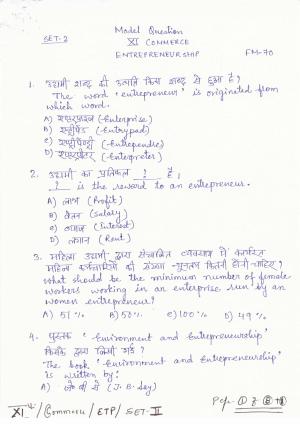 Model Question
SET-2
XI COMMERCE
ENTREPRENEURSHIP
FM-70
1. उद्यमी शब्द की उत्पत्ति किस शब्द से हुआ है?
The word 'entrepreneur' is originated from
which word.
A) (Enterprise)
B) (Entrypad)
C) (Entrependre)
D) (Enterpreter)
2. उद्यमी का प्रतिफल ? है।
? is the reward to an entrepreneur.
A) लाभ (Profit)
B) वेतन (Salary)
C) ब्याज (Interest)
D) लगान (Rent)
3. महिला उद्यमी द्वारा संचालित व्यवसाय में कार्यरत
महिला कर्मचारियों की संख्या न्यूनतम कितनी होनी चाहिए?
What should be the minimum number of female
workers working in an enterprise run by an
women entrepreneur?
A) 51% B) 50% C) 100% D) 49%
4. पुस्तक 'Environment and Entrepreneurship'
किसके द्वारा लिखी गई?
The book 'Environment and Entrepreneurship'
is written by:
A) जे० बी० से (J. B. dey)
XI / Commerce / ETP / SET-II